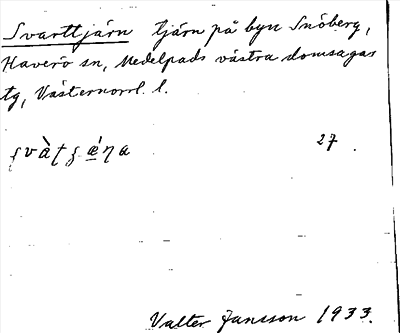 Svarttjärn tjärn på byn Snöberg,
Haverö sn, Medelpads västra domsagas
tg, Västernorrl. l.
27.
Valter Jansson 1933.